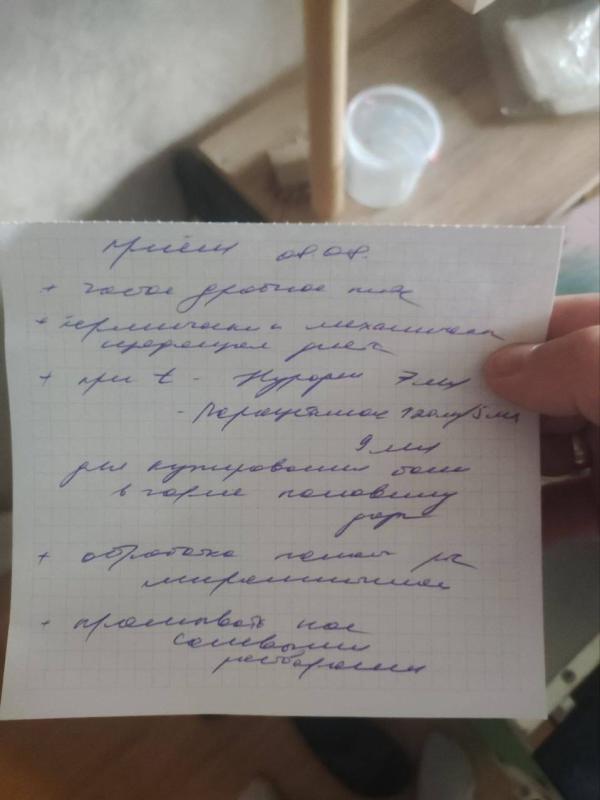 приём 08.08.
+ частое дробное питьё
+ термически и механически
щадящая диета
+ при t - Нурофен 7 мл
- Парацетамол 120мг/5мл
9 мл
для купирования боли
в горле половину
дозы
+ обработка полости рта
мирамистином
+ промывать нос
солевыми
растворами